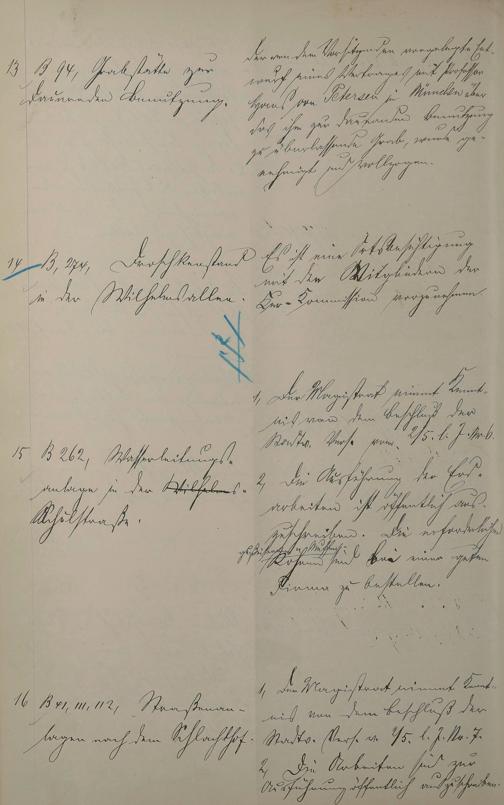 13 B 94, Grabstätte zur
dauernden Benutzung.
Der von dem Vorsitzenden vorgelegte Ent-
wurf eines Vertrages mit Professor
Hans von Petersen in München über
das ihm zur dauernden Benutzung
zu überlassende Grab, wurde ge-
nehmigt und vollzogen.
14 B, 274, Droschkenstand
in der Wilhelmsallee.
Es ist eine Ortsbesichtigung
mit den Mitgliedern der
Kur-Kommission vorzunehmen.
15 B 262, Wasserleitungs-
anlage in der Wilhelms-
Schulstraße.
1, Der Magistrat nimmt Kennt-
nis von dem Beschluß der
Stadtv. Vers. vom 2/5. l. J. No 6.
2, Die Ausführung der Erd-
arbeiten ist öffentlich aus-
zuschreiben. Die erforderlichen
Rohre sind bei einer guten
Firma zu bestellen.
16 B 41, 111, 112, Straßenan-
lagen nach dem Schlachthof.
1, Der Magistrat nimmt Kennt-
nis von dem Beschluß der
Stadtv. Vers. v. 2/5. l. J. No. 7.
2, Die Arbeiten sind zur
Ausführung öffentlich auszuschreiben.